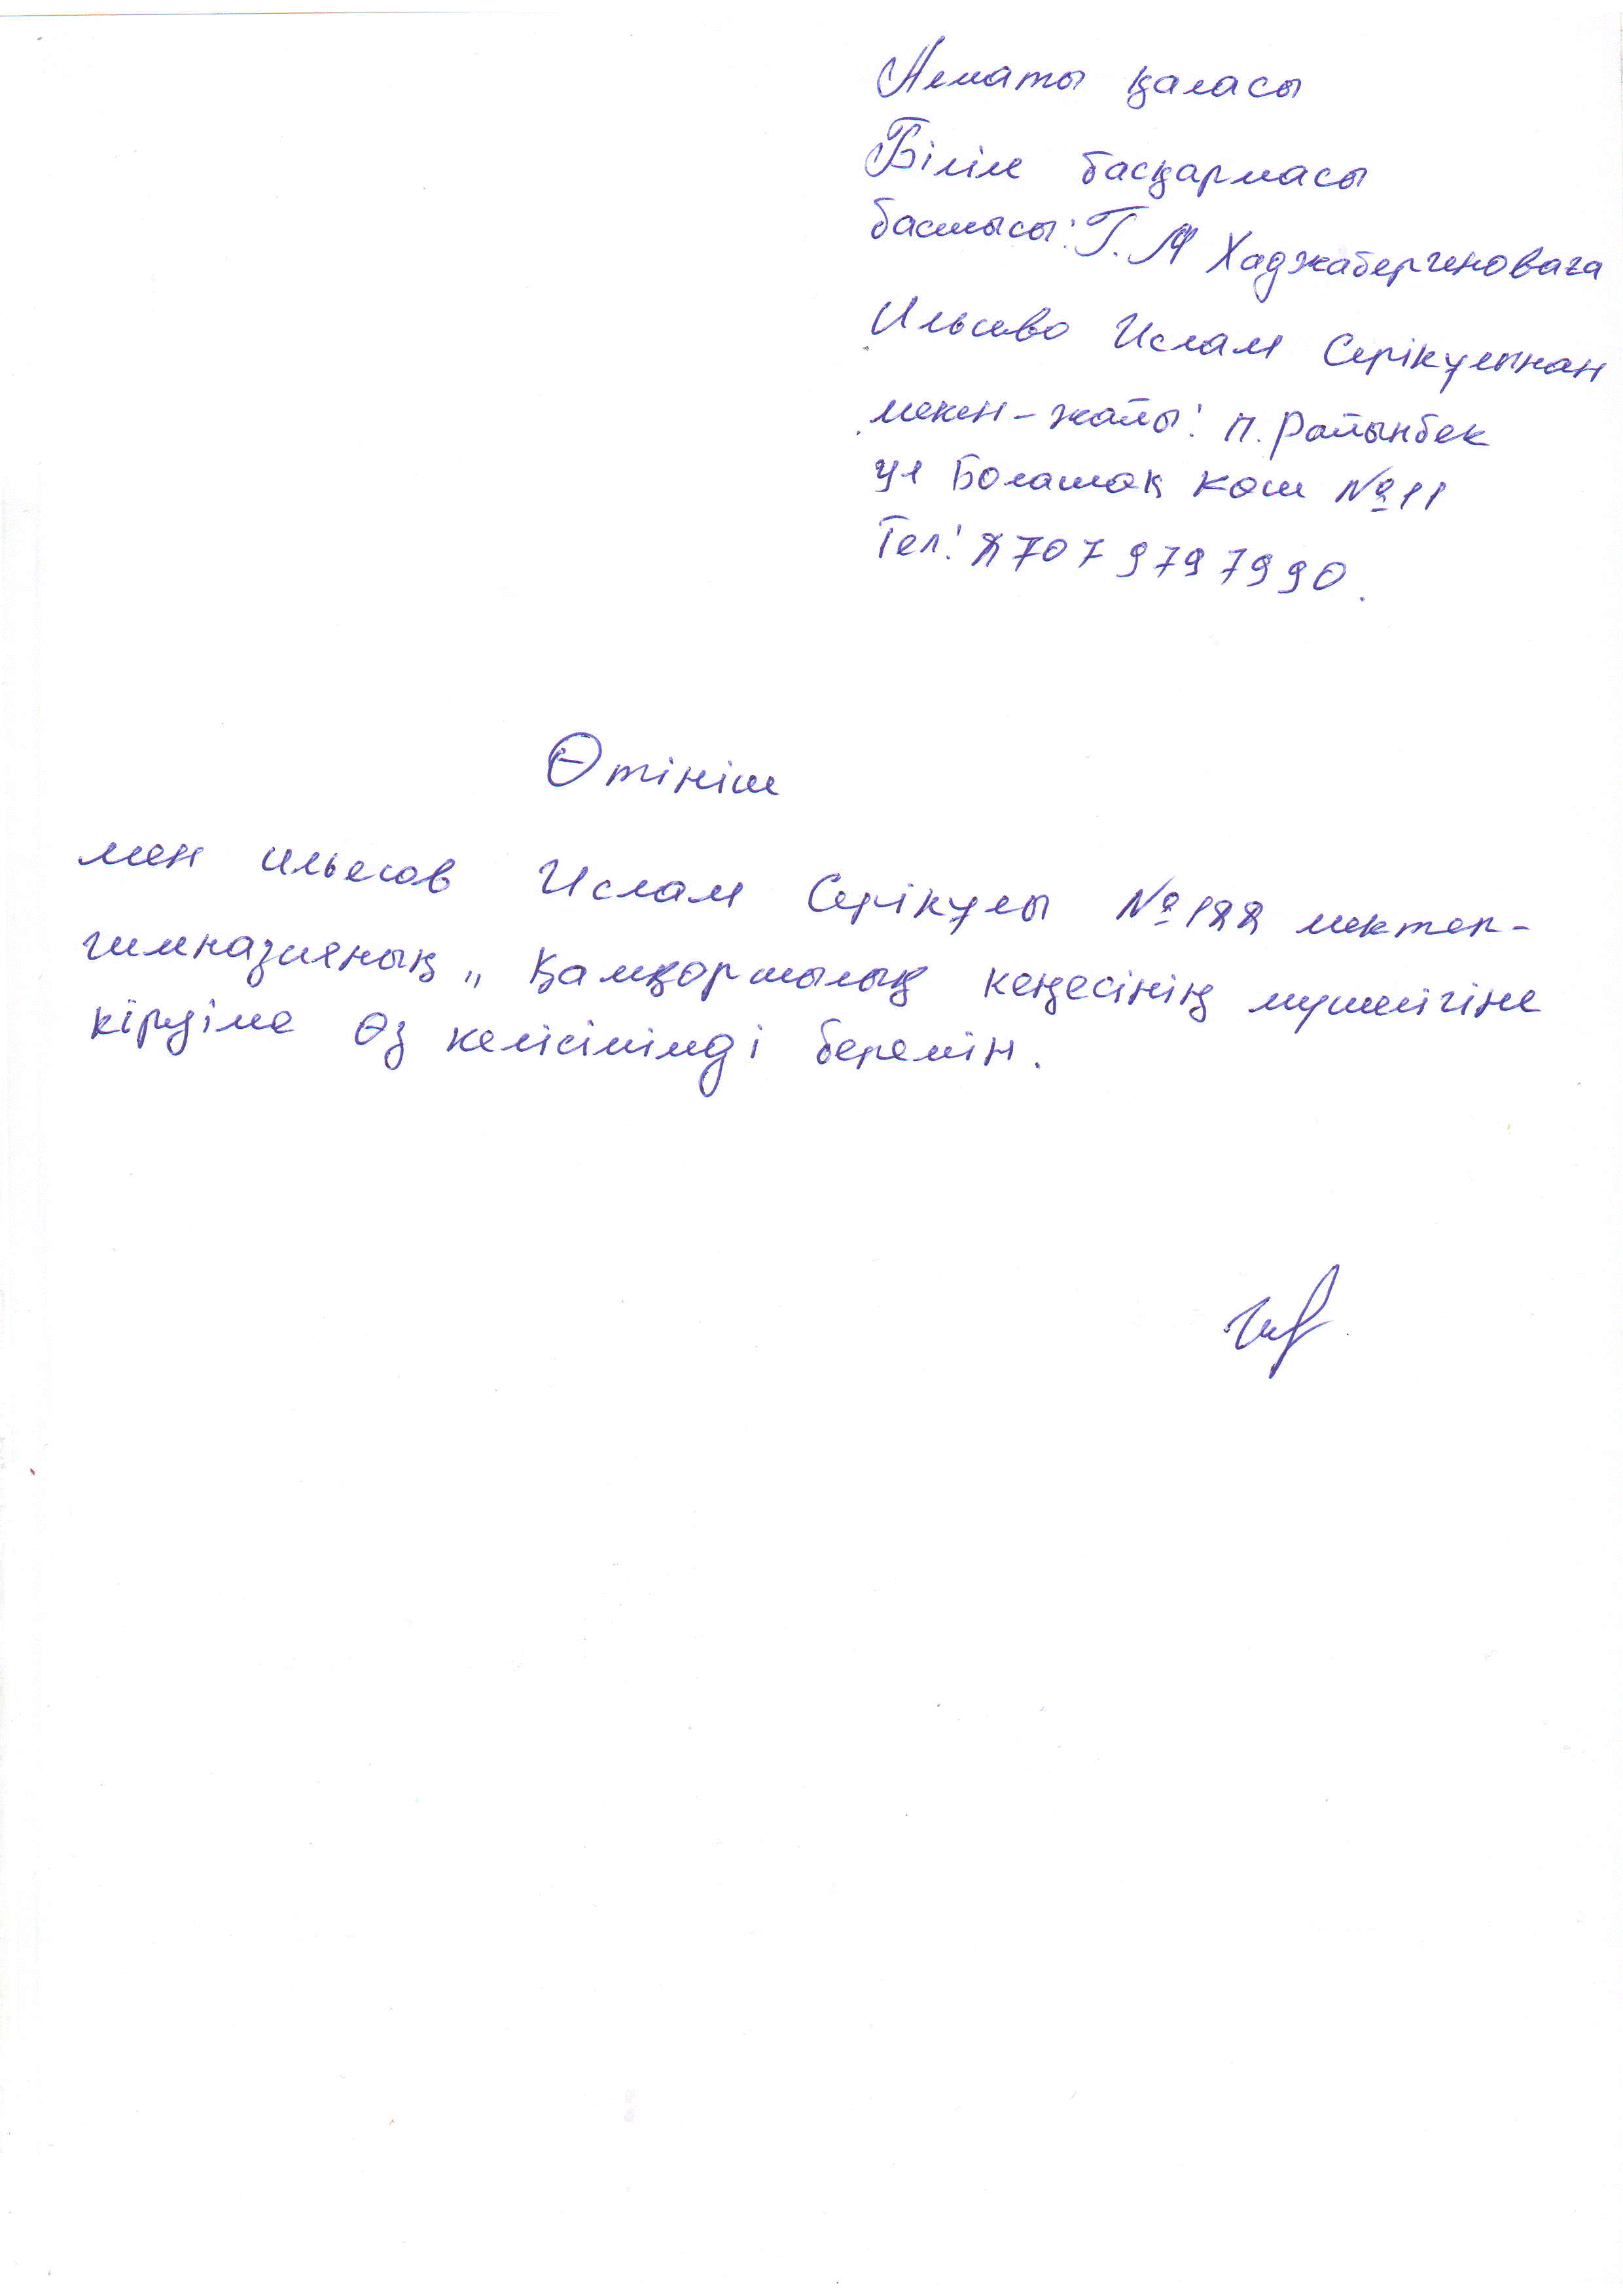 Алматы қаласы
Білім басқармасы
басшысы: Г. А Хаджабергеноваға
Ильсево Ислам Серікұлынан
мекен-жайы: п. Райынбек
ул Болашақ кош №11
Тел: 8707 9797990.
Өтініш
мен ильесов Ислам Серікұлы №188 мектеп-
гимназияның „ Қамқоршылық кеңесінің мүшелігіне
кіруіме өз келісімімді беремін.